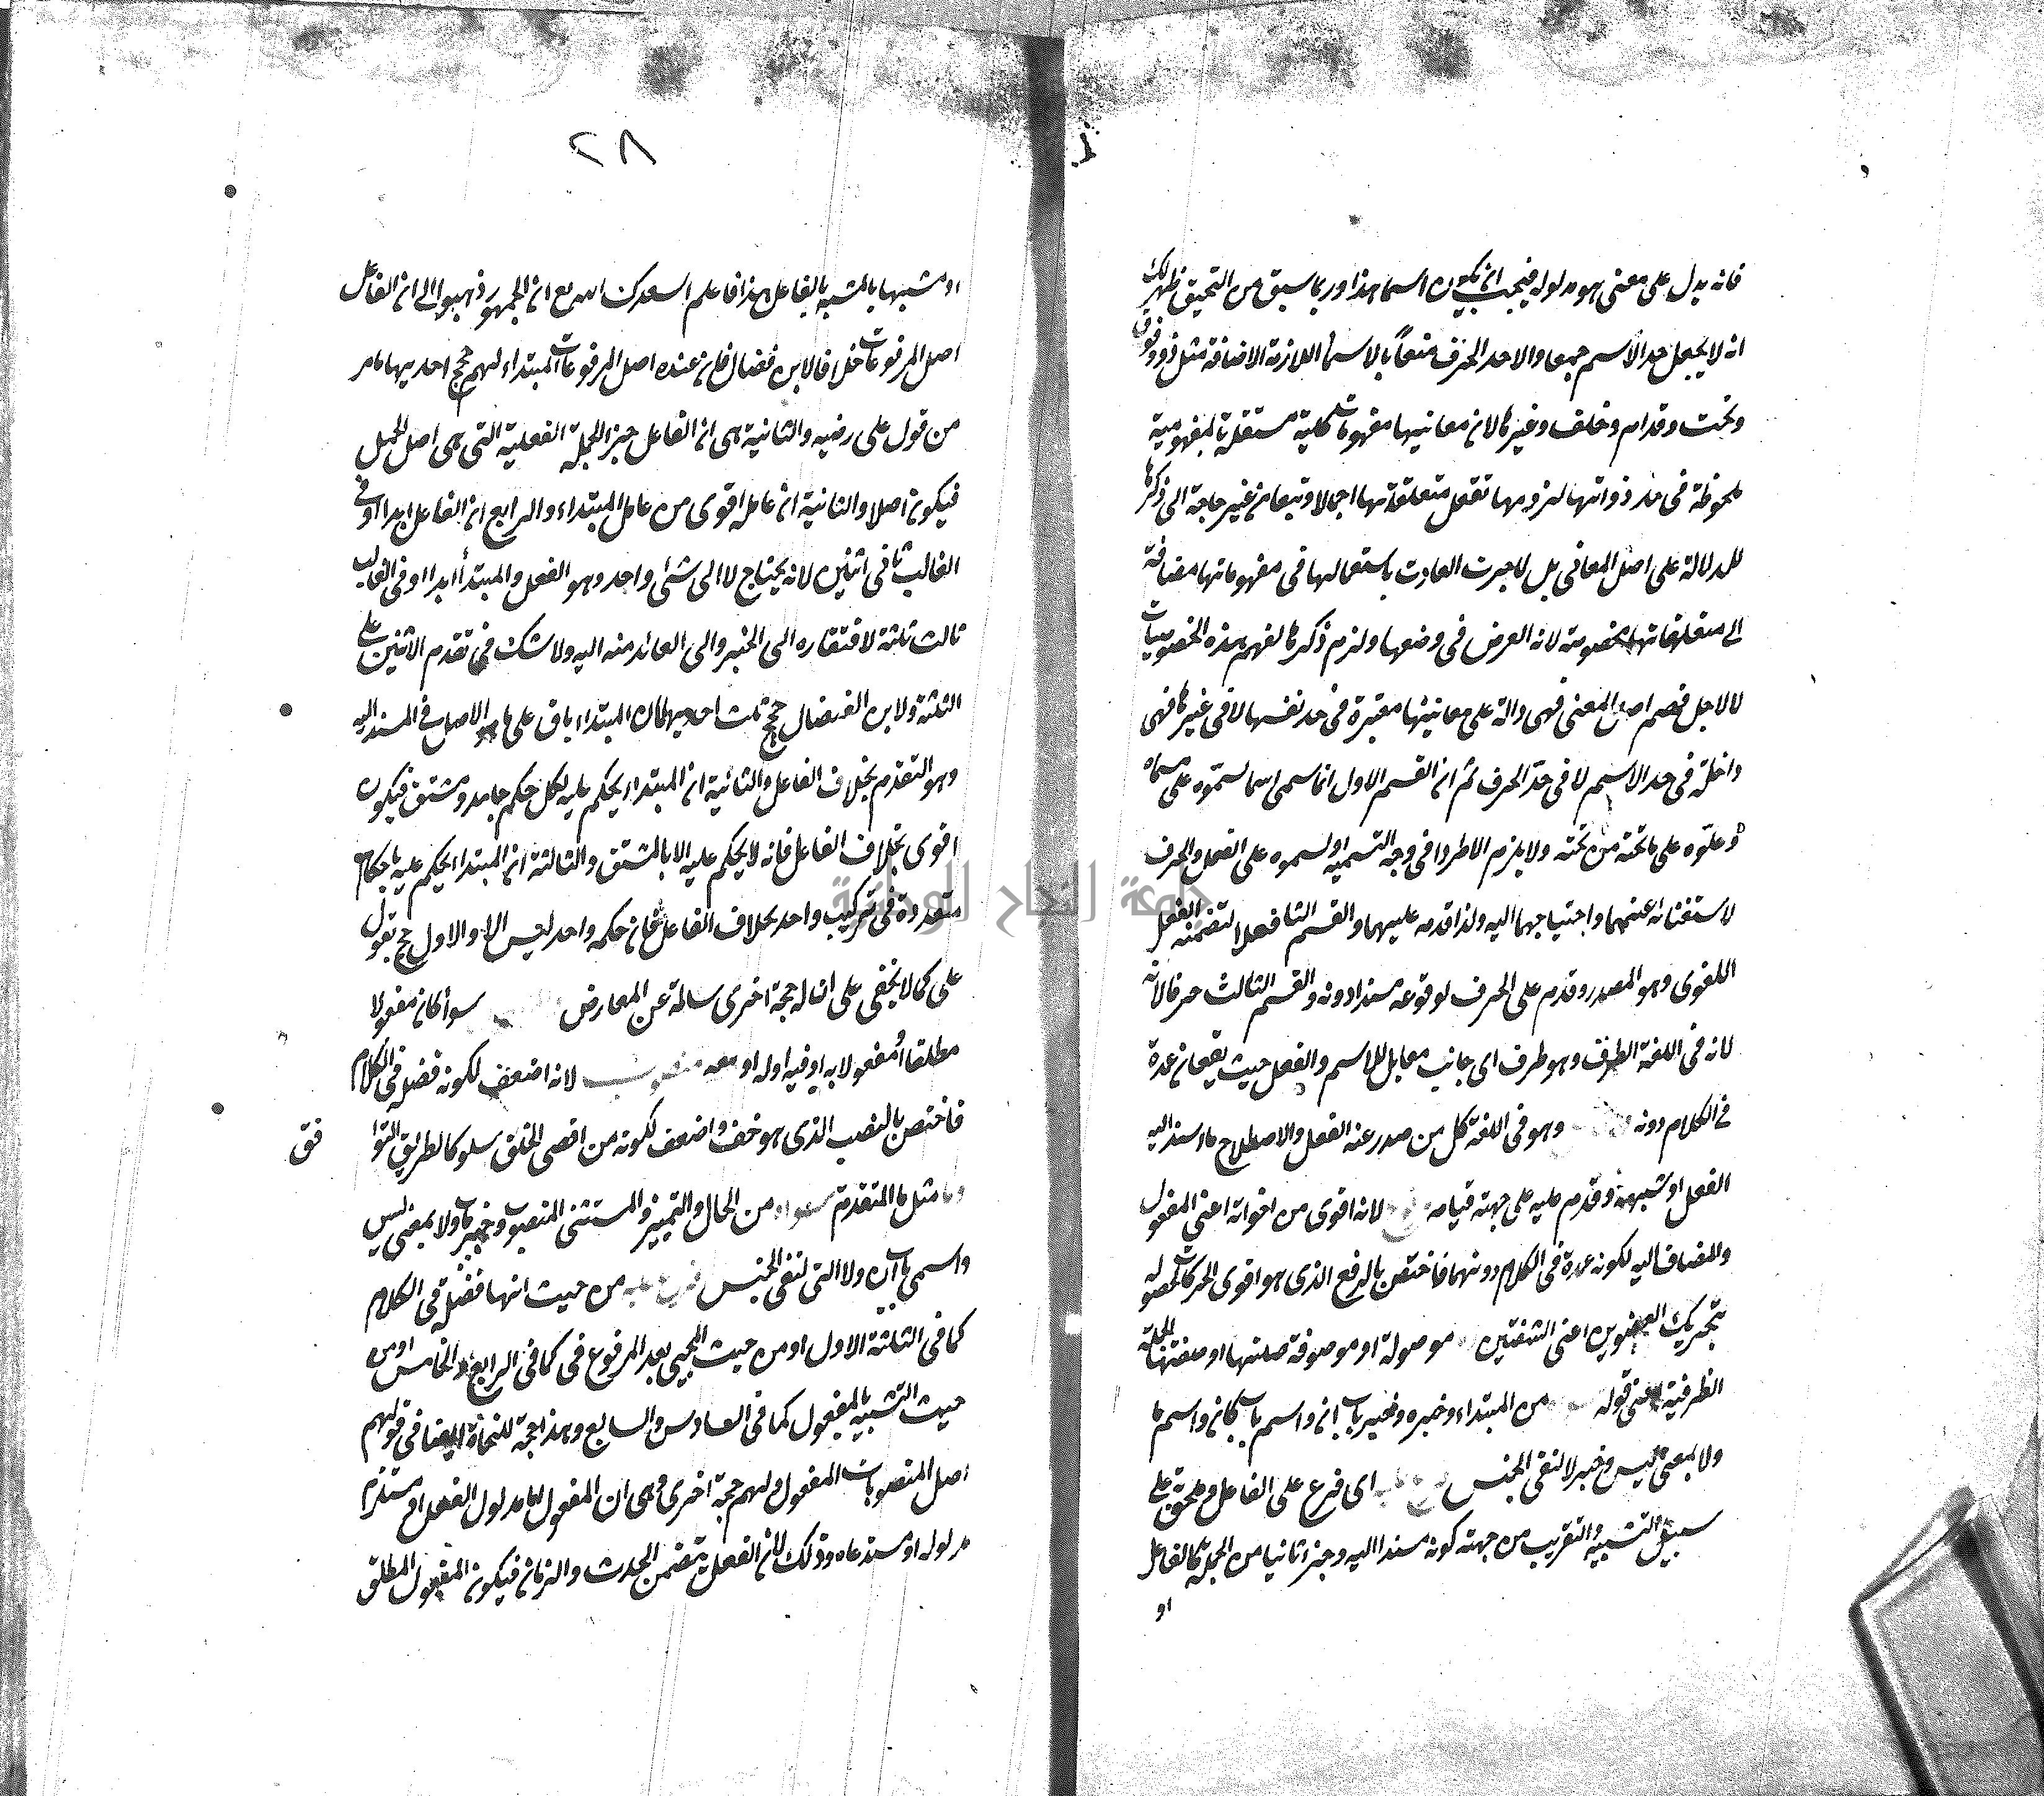 فانه يدل على معنى هو مدلوله فيجب ان يكون اسما هذا وربما سبق من التحقيق ظهر لك
انه لا يجعل حد الاسم جمعا والا حد الحرف منعاً بالاسماء اللازمة الاضافة مثل ذو وفوق
وتحت وقدام وخلف وغيرها لان معانيها مفهومات كلية مستقلة بالمفهومية
ملحوظة في حد ذواتها لزومها تعقل متعلقاتها اجمالا وتبعا من غير حاجة الى ذكرها
للدلالة على اصل المعاني بل لما جرت العادت باستعمالها في مفهوماتها مضافة
الى متعلقاتها مخصوصة لانه الغرض في وضعها ولزم ذكرها لفهم هذه الخصوصيات
لا لاجل فهم اصل المعنى فهي دالة على معانيها معتبرة في حد نفسها لا في غيرها فهي
داخلة في حد الاسم لا في حدّ الحرف ثم ان القسم الاول انما سمى اسما لسموّه على مسماه
وعلوّه على ما تحته من تحته ولا يلزم الاطراد في وجه التسمية او لسموه على الفعل والحرف
لاستغنائه عنهما واحتياجهما اليه ولذا قدمه عليهما والقسم الثاني فعلا لتضمنه الفعل
اللغوى وهو المصدر وقدم على الحرف لوقوعه مسندا دونه والقسم الثالث حرفا لانه
لانه في اللغة الطرف وهو طرف اى جانب مقابل للاسم والفعل حيث يقعان عمدة
في الكلام دونه وهو في اللغة كل من صدر عنه الفعل والاصطلاح ما اسند اليه
الفعل او شبهه وقدم عليه على جهة قيامه لانه اقوى من اخواته اعنى المفعول
والمضاف اليه لكونه عمدة في الكلام دونهما فاختص بالرفع الذى هو اقوى الحركات لحصوله
بتحريك العضوين اعنى الشفتين موصولة او موصوفة صلتها او صفتها الجملة
الظرفية اعنى قوله من المبتداء وخبره وخبر باب ان واسم باب كان واسم ما
ولا بمعنى ليس وخبر لا لنفى الجنس اى فرع على الفاعل وملحق على
سبيل التشبيه والتقريب من جهة كونه مسندا اليه وجزءا ثانيا من الجملة كالفاعل
او
٢٨
او مشبها بالمشبه بالفاعل هذا فاعلم اسعدك الله مع ان الجمهور ذهبوا الى ان الفاعل
اصل المرفوعات خلافا لابن فضال فان عنده اصل المرفوعات المبتداء لهم حجج احديها ما مر
من قول على رضيه والثانية هى ان الفاعل جزء الجملة الفعلية التى هى اصل الجمل
فيكون اصلا والثانية ان عامله اقوى من عامل المبتداء والرابع ان الفاعل ابدا او في
الغالب ثانى اثنين لانه يحتاج لا الى شئ واحد وهو الفعل والمبتدأ ابدا او في الغالب
ثالث ثلثة لافتقاره الى الخبر والى العائد منه اليه ولا شك في تقدم الاثنين على
الثلثة ولابن الفضال حجج ثلث احديها كان المبتداء باق على ما هو الاصل في المسند اليه
وهو التقدم بخلاف الفاعل والثانية ان المبتداء يحكم عليه لكل حكم جامد ومشتق فيكون
اقوى بخلاف الفاعل فانه لا يحكم عليه الا بالمشتق والثالثة ان المبتداء يحكم عليه باحكام
متعددة في تركيب واحد بخلاف الفاعل فان حكمه واحد ليس الا والاول حج بقول
على كما لا يخفى على ان له حجة اخرى سالمة عن المعارض سوأ كان مفعولا
مطلقا أو مفعولا به او فيه او له او معه منصوب لانه اضعف لكونه فضلة في الكلام
فاختص بالنصب الذى هو خف واضعف لكونه من اقصى الحلق سلوكا لطريق التوا
فق
مثل ما المتقدم من الحال والتمييز والمستثنى المنصوب وخبر ما ولا بمعنى ليس
واسمى باب ان ولا التى لنفى الجنس من حيث انها فضلة في الكلام
كما في الثلثة الاول او من حيث المجيئ بعد المرفوع في كما في الرابع والخامس او من
حيث التشبيه بالمفعول كما في السادس والسابع وهذا حجة للنحاة ايضا في قولهم
اصل المنصوبات المفعول ولهم حجة اخرى وهى ان المفعول اما مدلول الفعل او مستلزم
مدلوله او مستدعاه وذلك لان الفعل يتضمن الحدث والزمان فيكون المفعول المطلق
جامعة النجاح الوطنية